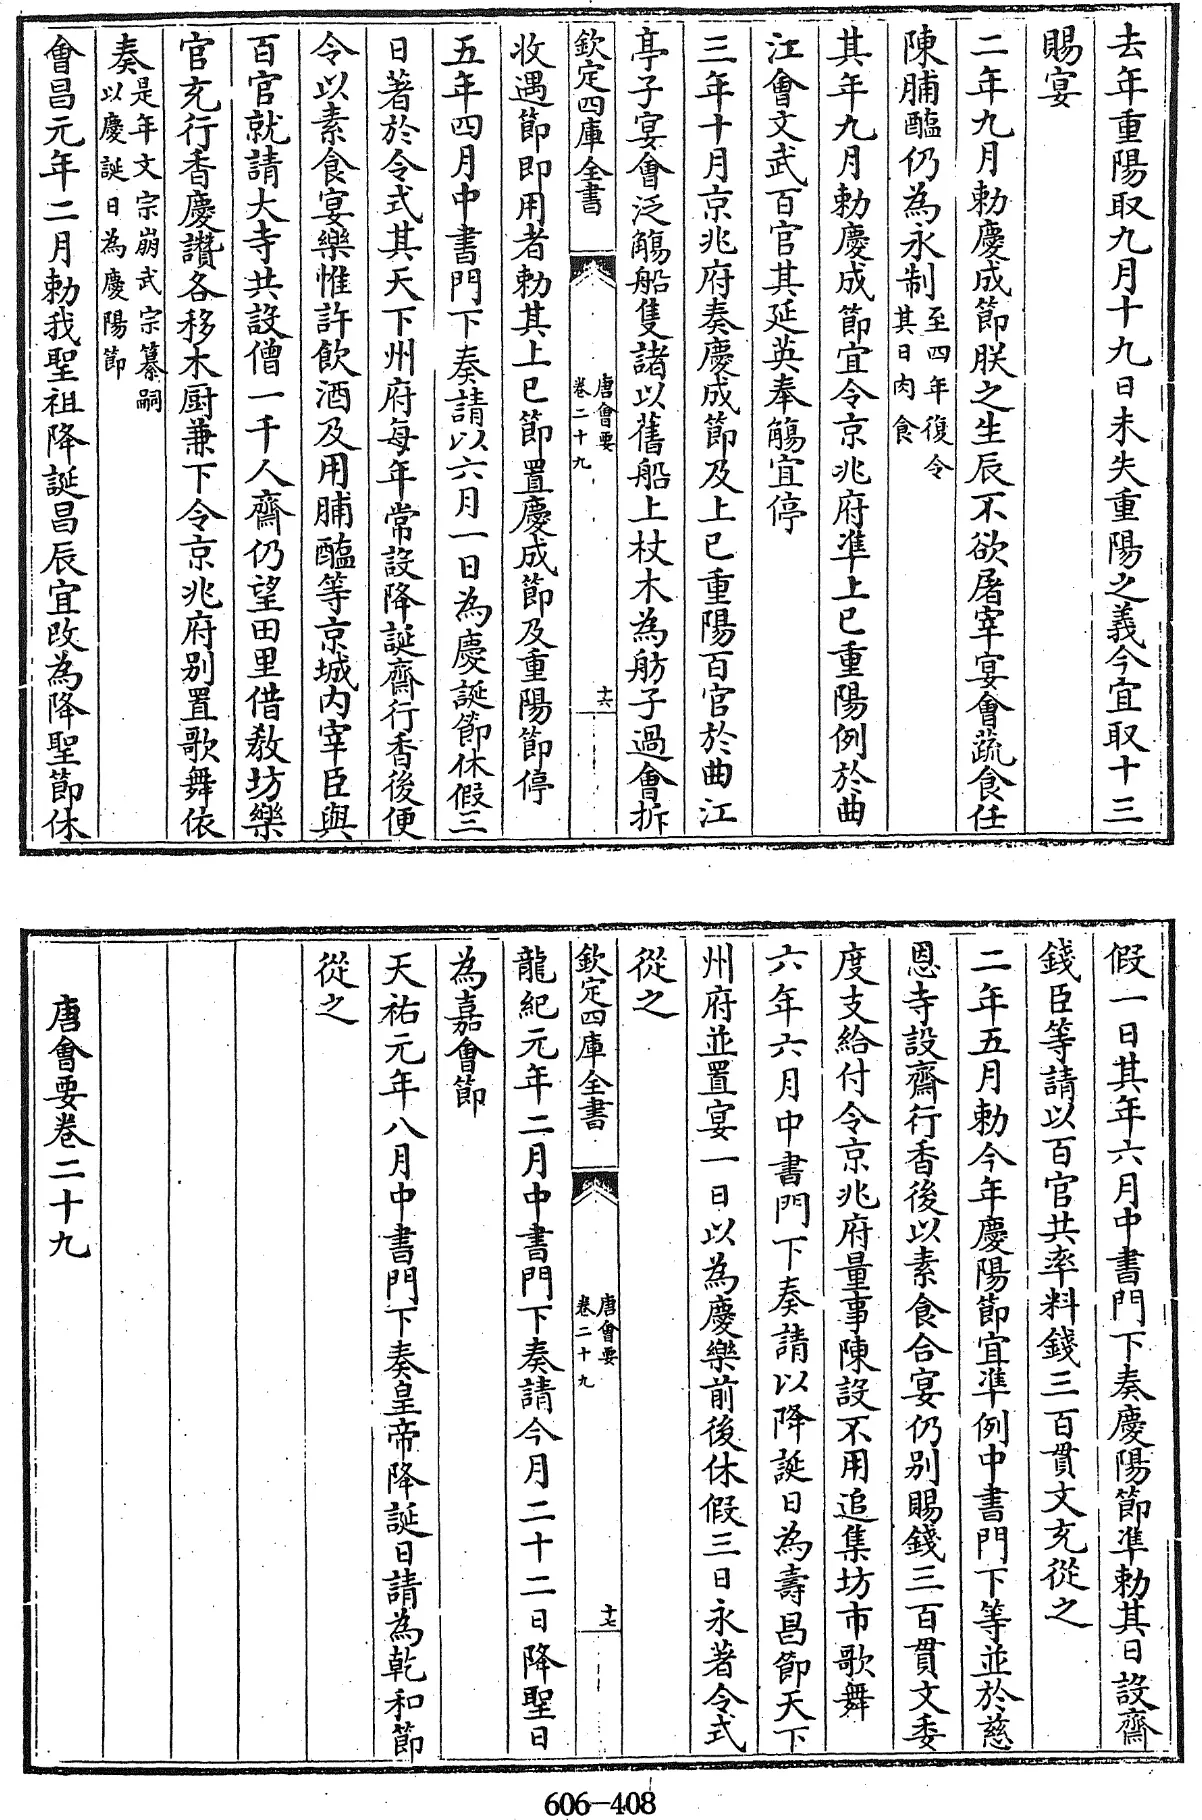 去年重陽取九月十九日未失重陽之義今宜取十三
賜宴
二年九月勅慶成節朕之生辰不欲屠宰宴會蔬食任
陳脯醢仍為永制至四年復令
其日肉食
其年九月勅慶成節宜令京兆府準上巳重陽例於曲
江會文武百官其延英奉觴宜停
三年十月京兆府奏慶成節及上巳重陽百官於曲江
亭子宴會泛觴船隻諸以舊船上杖木為舫子過會拆
欽定四庫全書
唐會要
卷二十九
十六
收遇節即用者勅其上巳節置慶成節及重陽節停
五年四月中書門下奏請以六月一日為慶誕節休假三
日著於令式其天下州府每年常設降誕齋行香後便
令以素食宴樂惟許飲酒及用脯醢等京城内宰臣與
百官就請大寺共設僧一千人齋仍望田里借教坊樂
官充行香慶讚各移木厨兼下令京兆府别置歌舞依
奏是年文宗崩武宗纂嗣
以慶誕日為慶陽節
會昌元年二月勅我聖祖降誕昌辰宜改為降聖節休
假一日其年六月中書門下奏慶陽節準勅其日設齋
錢臣等請以百官共率料錢三百貫文充從之
二年五月勅今年慶陽節宜準例中書門下等並於慈
恩寺設齋行香後以素食合宴仍别賜錢三百貫文委
度支給付令京兆府量事陳設不用追集坊市歌舞
六年六月中書門下奏請以降誕日為壽昌節天下
州府並置宴一日以為慶樂前後休假三日永著令式
從之
欽定四庫全書
唐會要
卷二十九
十七
龍紀元年二月中書門下奏請今月二十二日降聖日
為嘉會節
天祐元年八月中書門下奏皇帝降誕日請為乾和節
從之
唐會要卷二十九
606-408